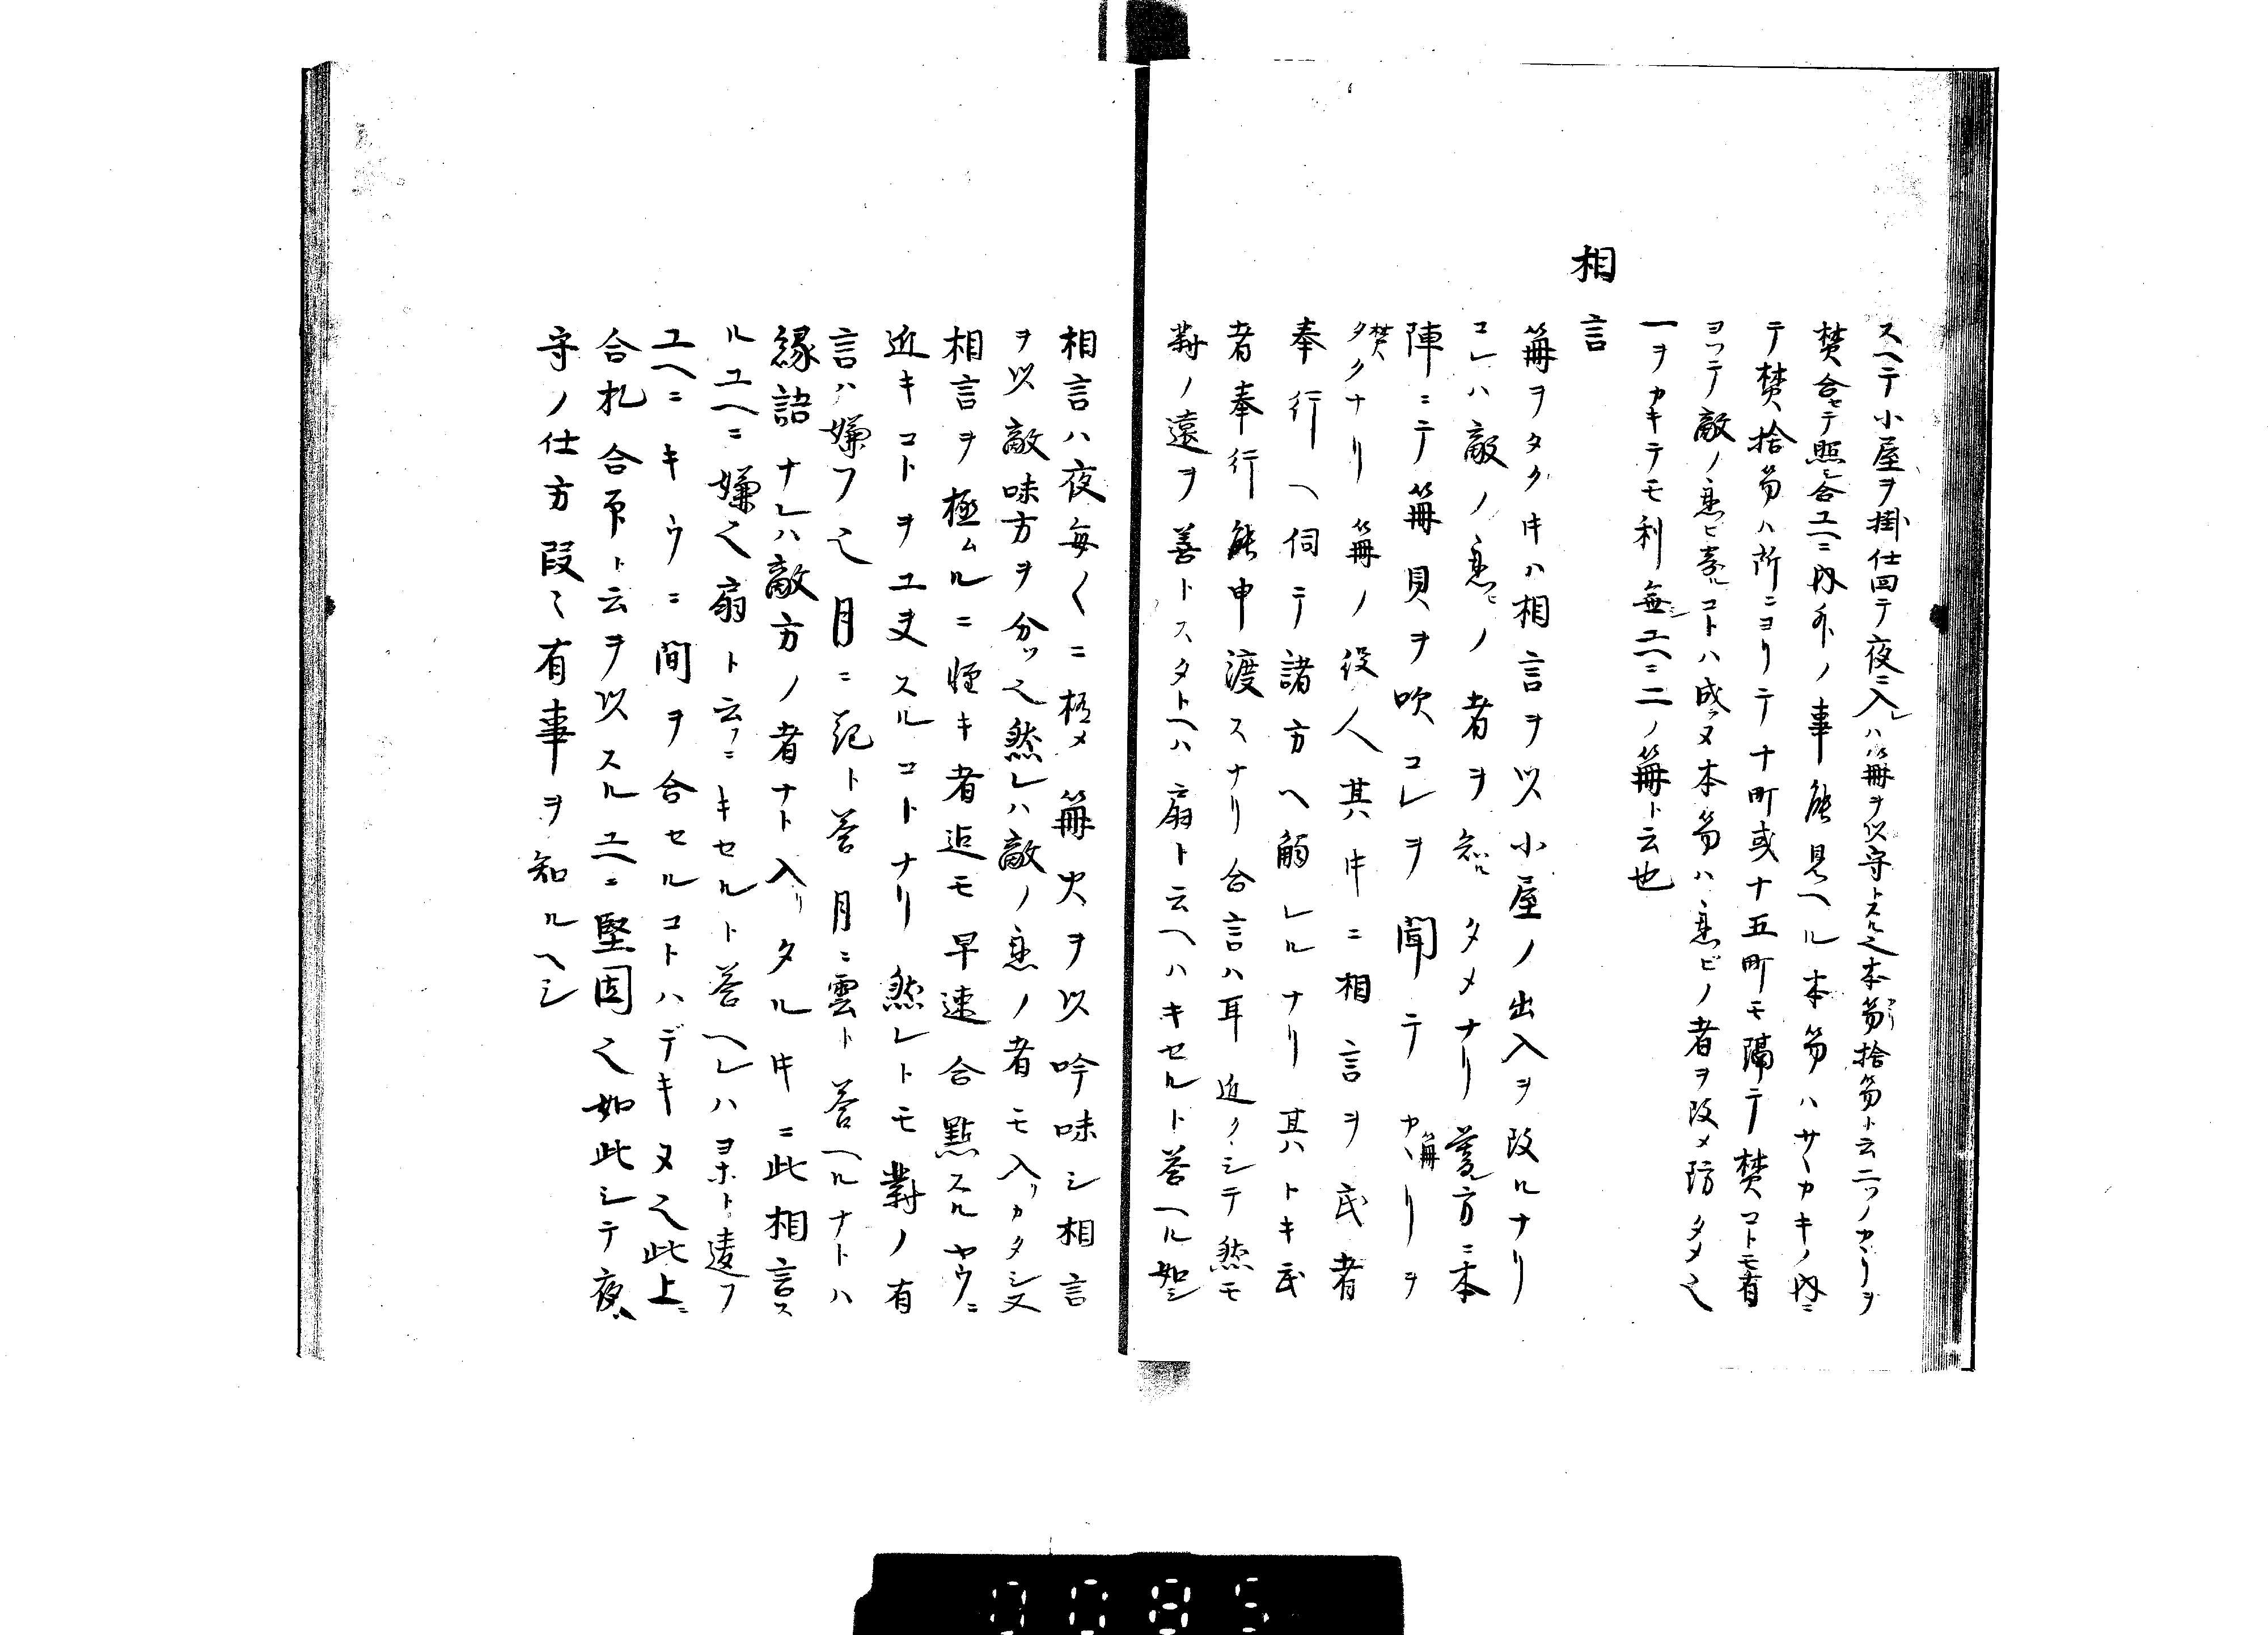 スヘテ小屋ヲ掛仕回テ夜ニ入レハ篝ヲ以守トスル之本篝捨篝ト云二ツノカヽリヲ
焚合セテ照シ合ユヘニ内外ノ事能見ヘル本篝ハサクカキノ内ニ
テ焚捨篝ハ所ニヨリテ十町或十五町モ隔テ焚コトモ有
ヨツテ敵ノ忍ヒ寄ルコトハ成ラヌ本篝ハ忍ビノ者ヲ改メ防タメ之
一ヲカキテモ利無シユヘニ二ノ篝ト云也
相言
篝ヲタク时ハ相言ヲ以小屋ノ出入ヲ改ルナリ
コレハ敵ノ忍ヒノ者ヲ知ルタメナリ暮方ニ本
陣ニテ篝貝ヲ吹コレヲ聞テ篝カヽリヲ
焚タクナリ篝ノ役人其时ニ相言ヲ武者
奉行ヘ伺テ諸方ヘ觸レルナリ其ハトキ武
者奉行能申渡スナリ合言ハ耳近クシテ然モ
對ノ遠ヲ善トスタトヘハ扇ト云ヘハキセルト答ヘル如シ
相言ハ夜毎〱ニ極メ篝火ヲ以吟味シ相言
ヲ以敵味方ヲ分ツ之然レハ敵ノ忍ノ者モ入リカタシ又
相言ヲ極ムルニ軽キ者迄モ早速合點スルヤウニ
近キコトヲユ叓スルコトナリ然レトモ對ノ有
言ハ嫌フ之月ニ花ト答月ニ雲ト答ヘルナトハ
縁語ナレハ敵方ノ者ナト入リタル时ニ此相言ス
ルユヘニ嫌之扇ト云フニキセルト答ヘレハヨホト違フ
ユヘニキウニ間ヲ合セルコトハデキヌ之此上ニ
合札合印ト云ヲ以スルユヘニ堅固之如此シテ夜ハ
守ノ仕方段〻有事ヲ知ルヘシ